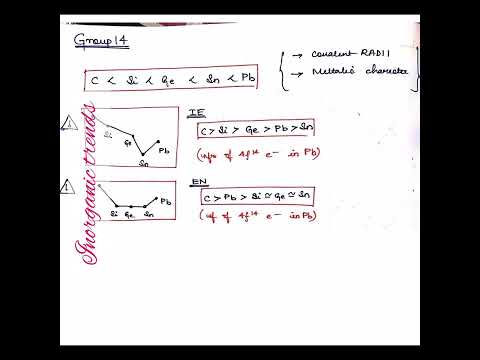 Group 14
C < Si < Ge < Sn < Pb
→ Covalent RADII
→ Metallic character
Si
Ge
Sn
Pb
IE
C > Si > Ge > Pb > Sn
of 4f¹⁴ e⁻ in Pb)
Si Ge Sn
Pb
EN
C > Pb > Si ≃ Ge ≃ Sn
of 4f¹⁴ e⁻ in Pb)
Inorganic trends